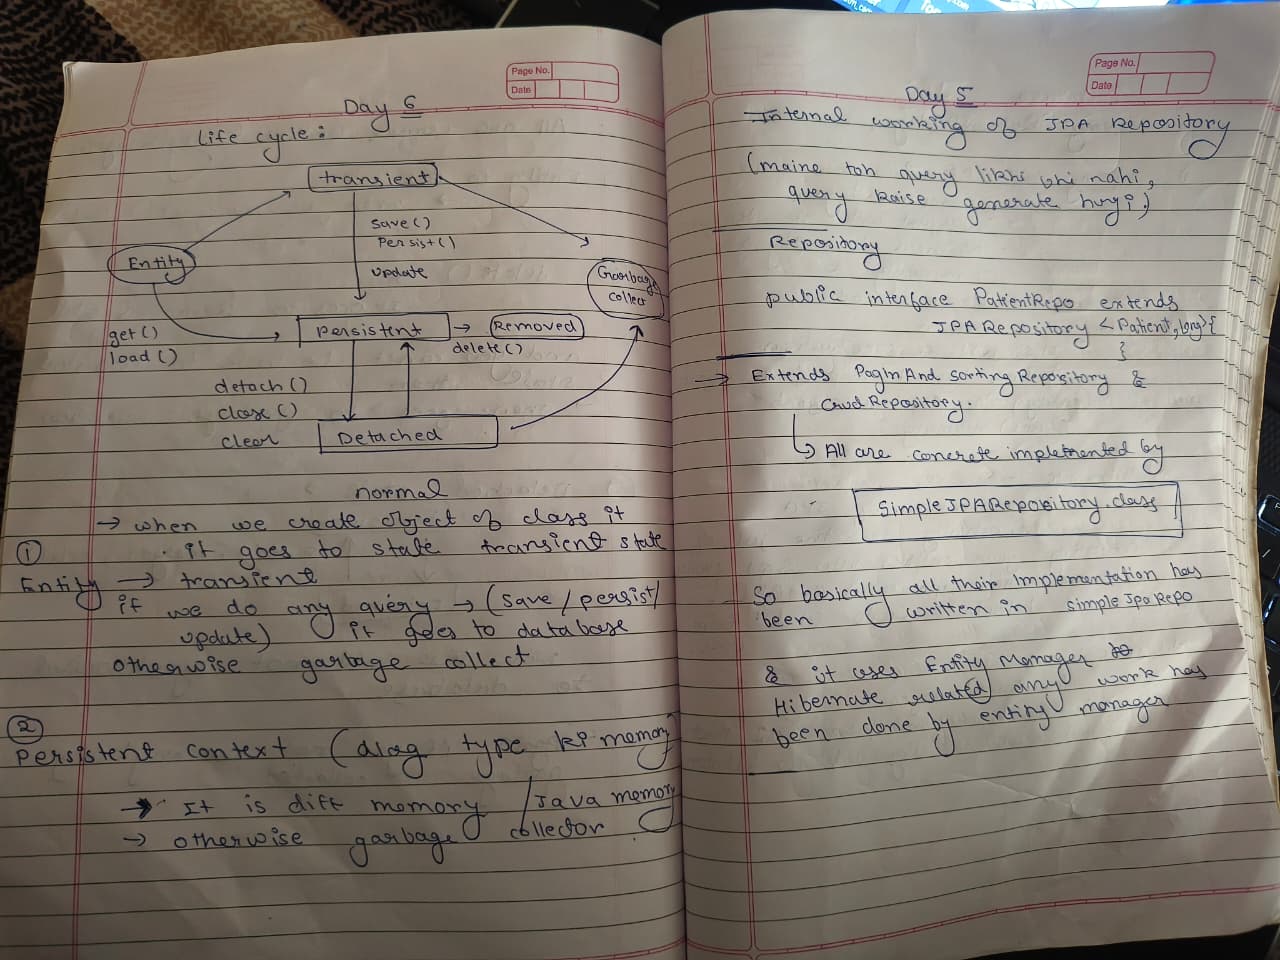 Page No.
Date
Day 6
Life cycle:
transient
save()
Persist()
update
Entity
Garbage
collect
get()
load()
Persistent
Removed
delete()
detach()
close()
clear
Detached
normal
→ when we create object of class it
it goes to state transient state
①
Entity → transient
if we do any query → (save / persist /
update) it goes to database
otherwise garbage collect
②
Persistent context (alag type ki memory
→ It is diff memory / Java memory
→ otherwise garbage collector
Page No.
Date
Day 5
Internal working of JPA Repository
(maine toh query likhi bhi nahi,
query kaise generate hugi)
Repository
public interface PatientRepo extends
JPARepository <Patient, long> {
}
→ Extends PaginAndSortingRepository &
CrudRepository.
↳ All are concrete implemented by
SimpleJPARepository.class
So basically all their implementation has
been written in simpleJpaRepo
& it uses Entity Manager
Hibernate related any work has
been done by entity manager